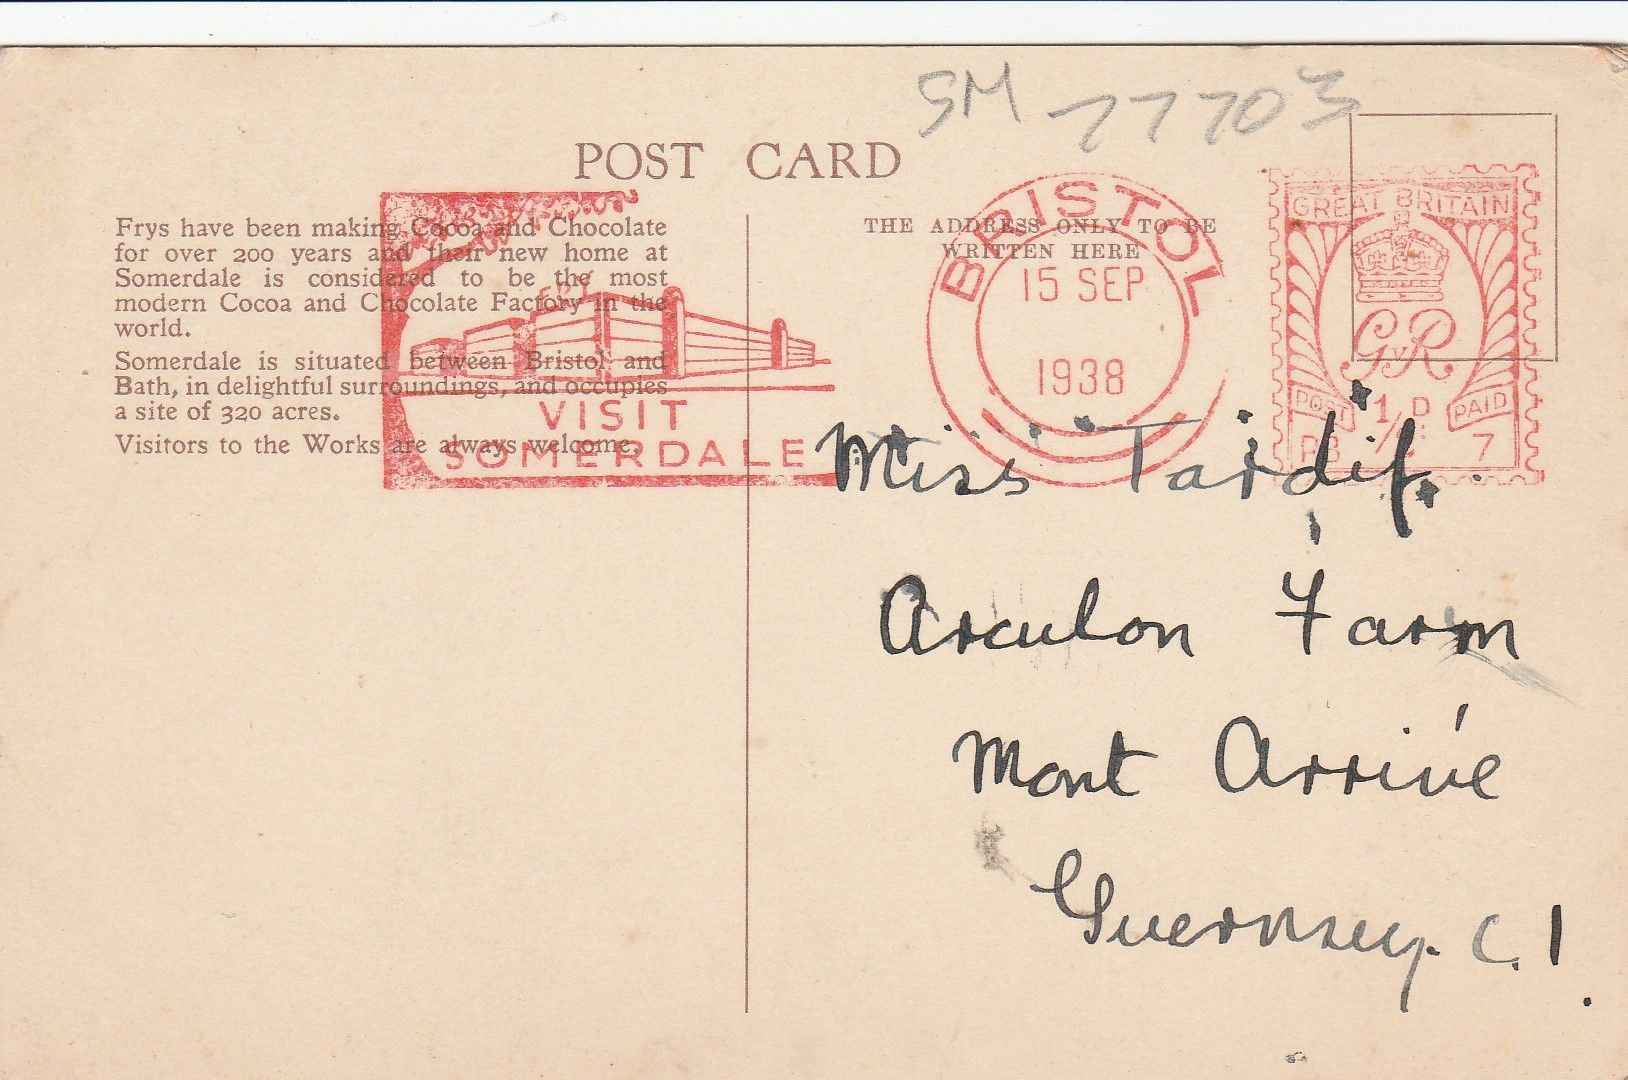 SM 77703
POST CARD
Frys have been making Cocoa and Chocolate
for over 200 years and their new home at
Somerdale is considered to be the most
modern Cocoa and Chocolate Factory in the
world.
Somerdale is situated between Bristol and
Bath, in delightful surroundings, and occupies
a site of 320 acres.
Visitors to the Works are always welcome.
VISIT
SOMERDALE
THE ADDRESS ONLY TO BE
WRITTEN HERE
BRISTOL
15 SEP
1938
GREAT BRITAIN
GviR
POST 1/2D PAID
PB 7
Miss Tardif.
Arculon Farm
Mont Arrivé
Guernsey. C.I.